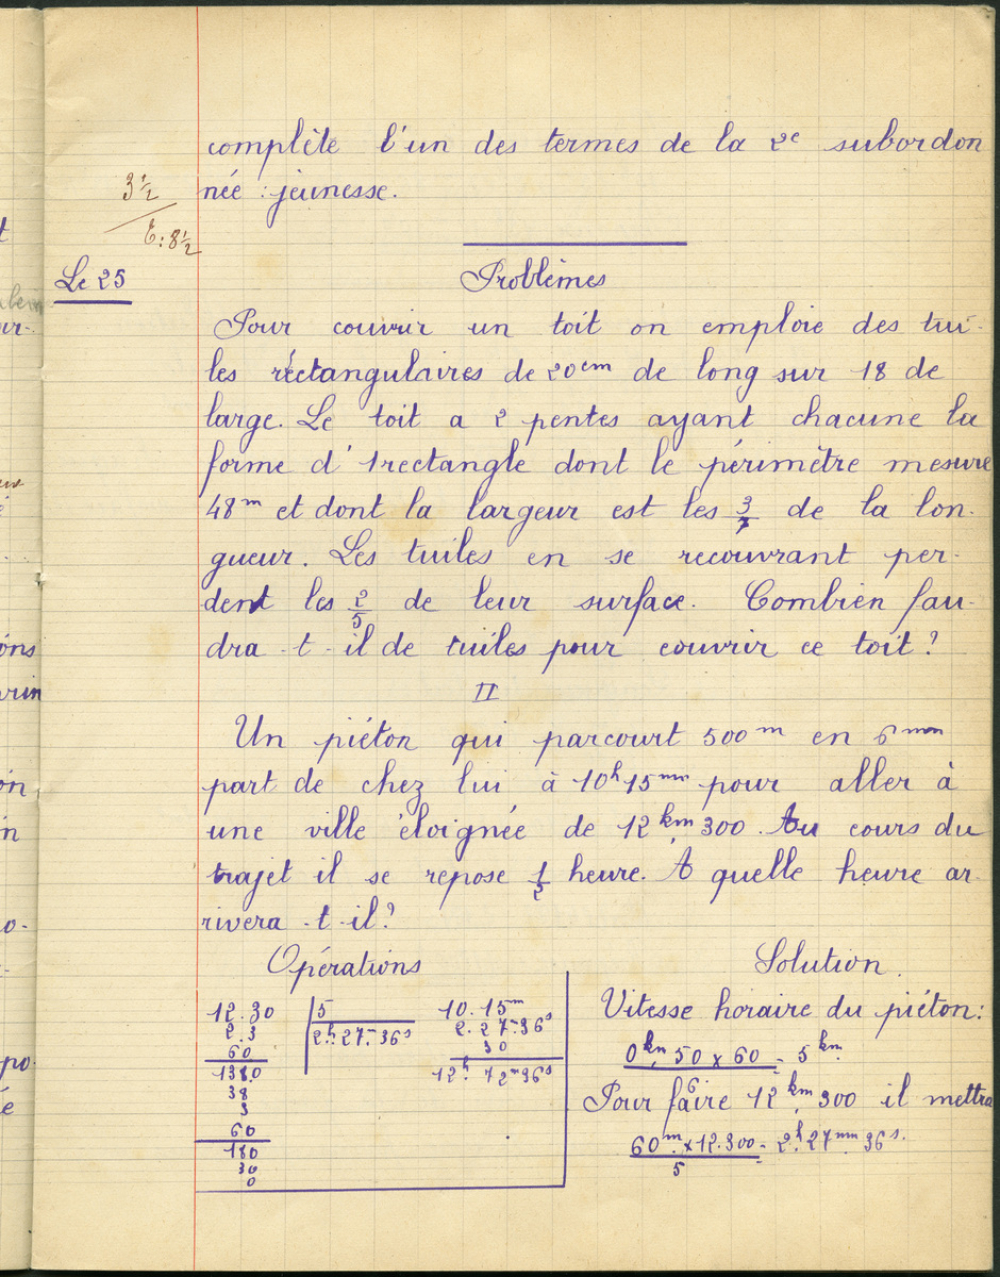 complète l'un des termes de la 2e subordon
née : jeunesse.
3 1/2
E: 8 1/2
Le 25
Problèmes
Pour couvrir un toit on emploie des tui-
les réctangulaires de 20cm de long sur 18 de
large. Le toit a 2 pentes ayant chacune la
forme d'1rectangle dont le périmètre mesure
48m et dont la largeur est les 3/7 de la lon-
gueur. Les tuiles en se recouvrant per-
dent les 2/5 de leur surface. Combien fau-
dra-t-il de tuiles pour couvrir ce toit?
II
Un piéton qui parcourt 500m en 6mn
part de chez lui à 10h15mn pour aller à
une ville éloignée de 12km,300. Au cours du
trajet il se repose 1/2 heure. A quelle heure ar-
rivera-t-il?
Opérations
12.30 | 5
2.3 2h.27m.36s
60
1380
38
3
60
180
30
0
10.15m
2.27m.36s
30
12h.72m36s
Solution.
Vitesse horaire du piéton:
0km,50 x 60 = 5km
6
Pour faire 12km,300 il mettra
60m x 12.300 = 2h.27mn.36s.
5